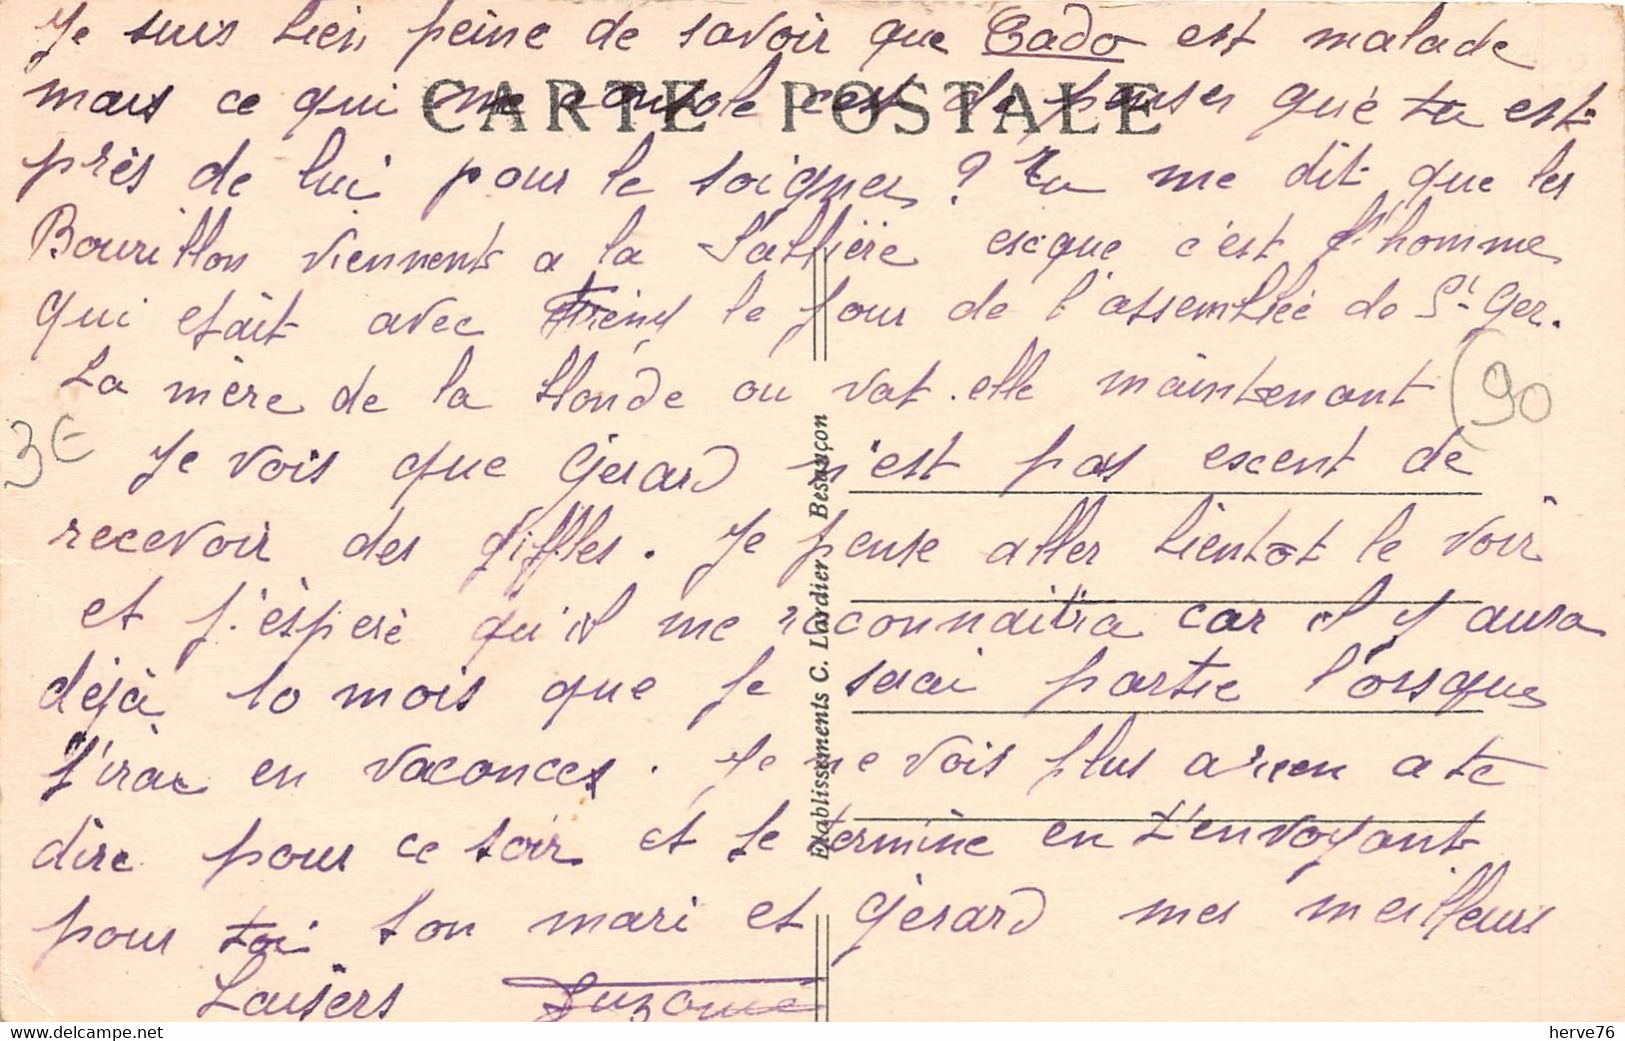 Je suis bien peine de savoir que Cado est malade
CARTE POSTALE
mais ce qui me console c'est de penser que tu est
près de lui pour le soigner ? Tu me dit que les
Bourillon viennent a la esque c'est l'homme
qui etait avec le jour de l'assemblée de St Ger.
La mère de la blonde ou vat-elle maintenant
(90
3€
Je vois que Gerard n'est pas escent de
recevoir des giffles. Je pense aller bientot le voir
et j'éspere qu'il me reconnaitra car il y aura
déjà 10 mois que je serai partie lorsque
j'irai en vacances. Je ne vois plus a rien a te
dire pour ce soir et je termine en t'envoyant
pour toi ton mari et Gérard mes meilleurs
baisers Suzanne
Etablissements C. Lardier Besançon
herve76